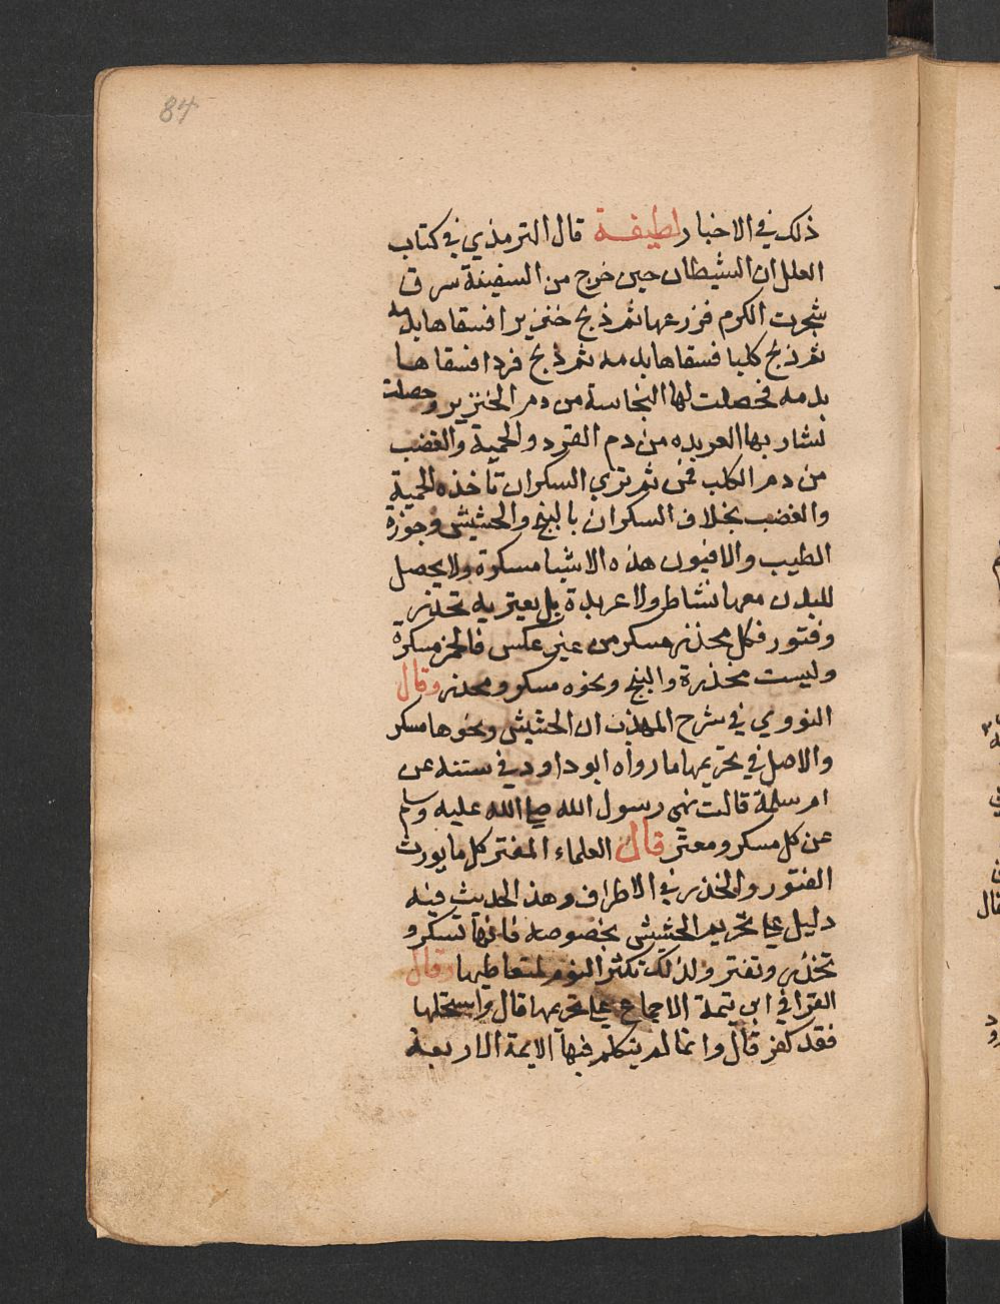 84
ذلك في الاخبار لطيفة قال الترمذي في كتاب
العلل ان الشيطان حين خرج من السفينة سرق
شجرت الكرم فزرعها ثم ذبح خنزيرا فسقاها بدمه
ثم ذبح كلبا فسقاها بدمه ثم ذبح قردا فسقاها
بدمه فحصلت لها النجاسة من دم الخنزير وحصلت
لشاربها العربده من دم القرد والحمية والغضب
من دم الكلب فمن ثم تري السكران تاخذه الحمية
والغضب بخلاف السكران بالبنج والحشيش وجوزة
الطيب والافيون هذه الاشيا مسكرة ولا يحصل
للبدن معها نشاط ولا عربدة بل يعتريه تخدير
وفتور فكل مخدر مسكر من غير عكس فالخمر مسكرة
وليست مخدرة والبنج ونحوه مسكر ومخدر وقال
النووي في شرح المهذب ان الحشيش ونحوها مسكر
والاصل في تحريمها ما رواه ابو داود في سننه عن
ام سلمة قالت نهى رسول الله صلى الله عليه وسلم
عن كل مسكر ومفتر قال العلماء المفتر كل ما يورث
الفتور والخذر في الاطراف وهذ الحديث فيه
دليل على تحريم الحشيش بخصوصه فانها تسكر و
تخذر وتفتر ولذلك تكثر النوم لمتعاطيها وقال
القرافي ابن تيمة الاجماع على تحريمها قال واستحلها
فقد كفر قال وانما لم يتكلم فيها الايمة الاربعة